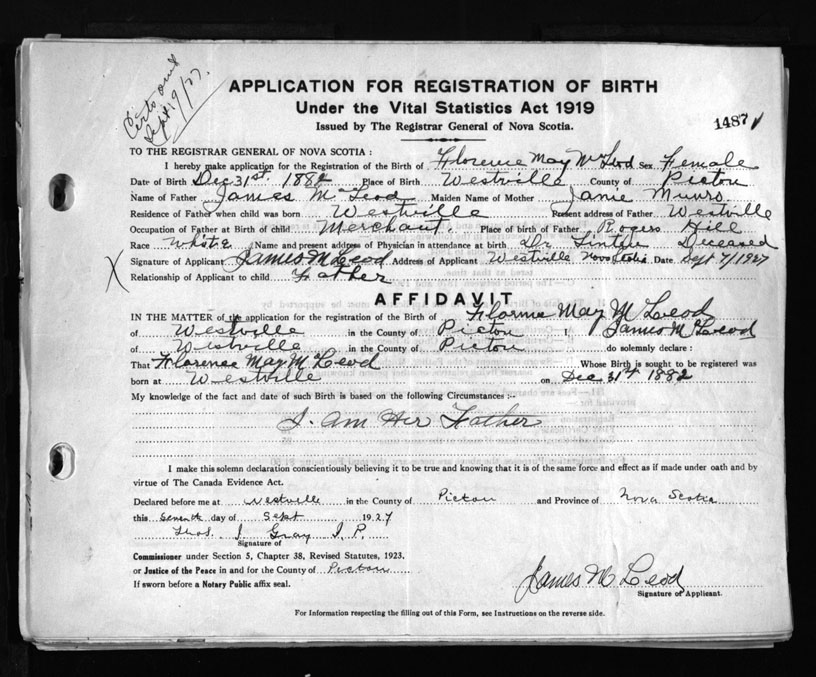 Certo out
Sept 19/27.
APPLICATION FOR REGISTRATION OF BIRTH
Under the Vital Statistics Act 1919
Issued by The Registrar General of Nova Scotia.
1487
TO THE REGISTRAR GENERAL OF NOVA SCOTIA :
I hereby make application for the Registration of the Birth of Florence May McLeod Sex Female
Date of Birth Dec 31st 1882 Place of Birth Westville County of Pictou
Name of Father James McLeod Maiden Name of Mother Janie Munro
Residence of Father when child was born Westville Present address of Father Westville
Occupation of Father at Birth of child Merchant. Place of birth of Father Rogers Hill
Race White Name and present address of Physician in attendance at birth Dr Deceased
Signature of Applicant James McLeod Address of Applicant Westville Nova Scotia Date Sept 7/1927
X
Relationship of Applicant to child Father
AFFIDAVIT
IN THE MATTER of the application for the registration of the Birth of Florence May McLeod
of Westville in the County of Pictou I, James McLeod
of Westville in the County of Pictou do solemnly declare :
That Florence May McLeod Whose Birth is sought to be registered was
born at Westville on Dec 31st 1882
My knowledge of the fact and date of such Birth is based on the following Circumstances :--
I. am Her Father
I make this solemn declaration conscientiously believing it to be true and knowing that it is of the same force and effect as if made under oath and by
virtue of The Canada Evidence Act.
Declared before me at Westville in the County of Pictou and Province of Nova Scotia
this Seventh day of Sept 1927
Thos. J. Gray J. P.
Signature of
Commissioner under Section 5, Chapter 38, Revised Statutes, 1923.
or Justice of the Peace in and for the County of Pictou
If sworn before a Notary Public affix seal.
James McLeod
Signature of Applicant.
For Information respecting the filling out of this Form, see Instructions on the reverse side.